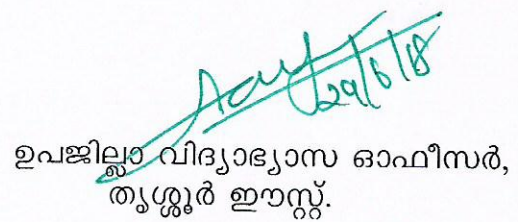 29/6/18
ഉപജില്ലാ വിദ്യാഭ്യാസ ഓഫീസർ,
തൃശ്ശൂർ ഈസ്റ്റ്.